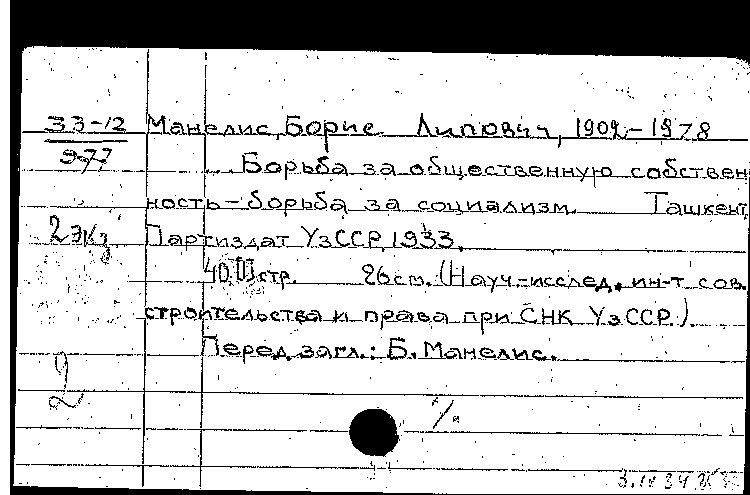 33-12 Манелис, Борис Липович, 1902-1978
977 ... Борьба за общественную собствен
ность-борьба за социализм. Ташкент,
2 экз. Партиздат УзССР, 1933.
40, стр. 26 см. (Науч-исслед. ин-т сов.
строительства и права при СНК УзССР.)
Перед загл.: Б. Манелис.
2